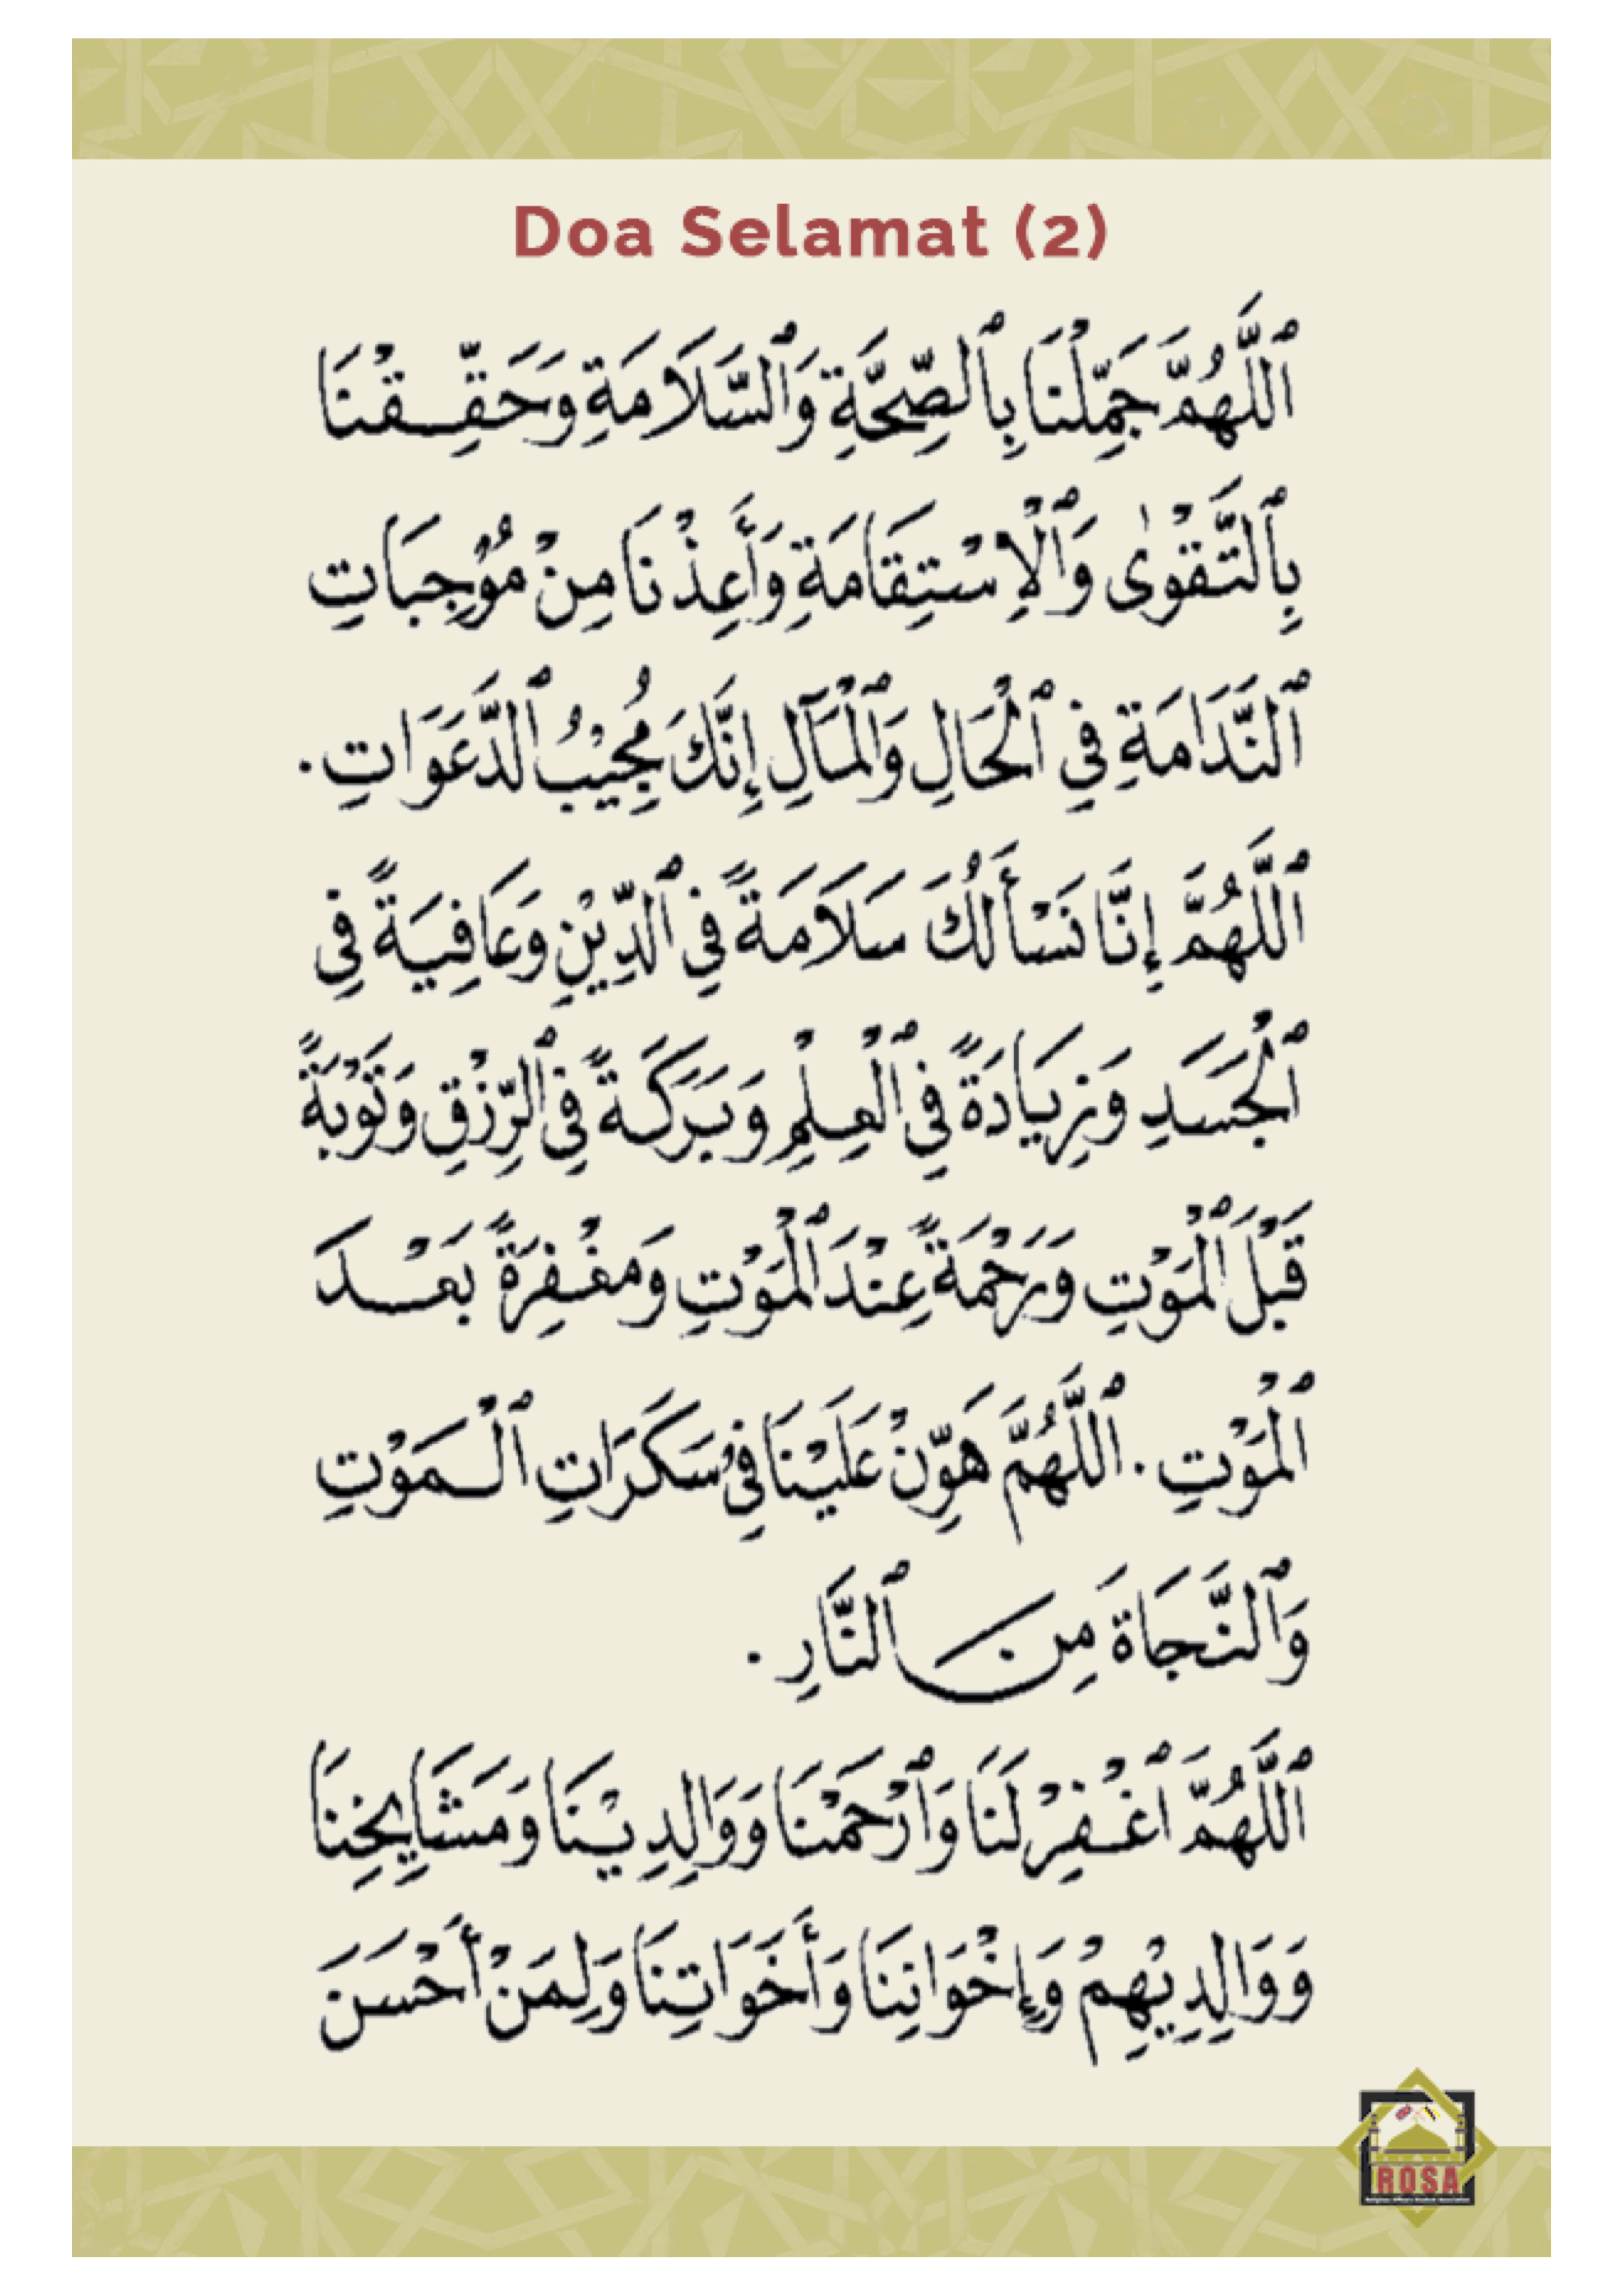 Doa Selamat (2)
ٱللَّهُمَّ جَمِّلْنَا بِٱلصِّحَّةِ وَٱلسَّلَامَةِ وَحَقِّقْنَا
بِٱلتَّقْوٰى وَٱلْاِسْتِقَامَةِ وَأَعِذْنَا مِنْ مُؤْجِبَاتِ
ٱلنَّدَامَةِ فِي ٱلْحَالِ وَٱلْمَآلِ إِنَّكَ مُجِيْبُ ٱلدَّعَوَاتِ.
ٱللَّهُمَّ إِنَّا نَسْأَلُكَ سَلَامَةً فِي ٱلدِّيْنِ وَعَافِيَةً فِى
ٱلْجَسَدِ وَزِيَادَةً فِي ٱلْعِلْمِ وَبَرَكَةً فِى ٱلرِّزْقِ وَتَوْبَةً
قَبْلَ ٱلْمَوْتِ وَرَحْمَةً عِنْدَ ٱلْمَوْتِ وَمَغْفِرَةً بَعْدَ
ٱلْمَوْتِ. ٱللَّهُمَّ هَوِّنْ عَلَيْنَا فِيْ سَكَرَاتِ ٱلْمَوْتِ
وَٱلنَّجَاةَ مِنَ ٱلنَّارِ.
ٱللَّهُمَّ ٱغْفِرْ لَنَا وَٱرْحَمْنَا وَوَالِدِيْنَا وَمَشَايِخِنَا
وَوَالِدِيْهِمْ وَإِخْوَانِنَا وَأَخَوَاتِنَا وَلِمَنْ أَحْسَنَ
ROSA